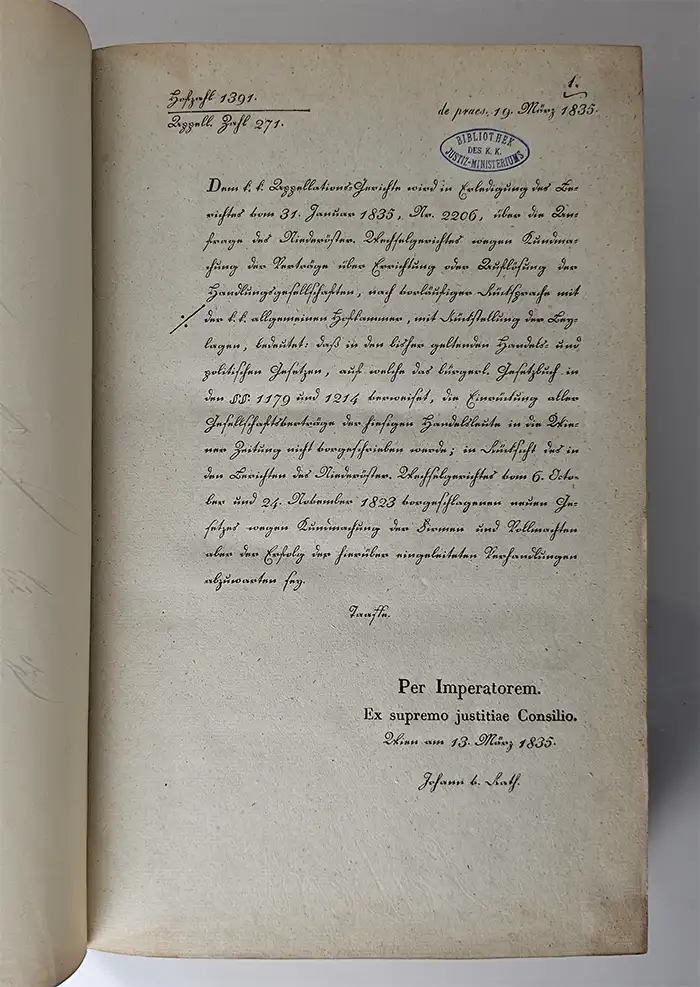 1.
Hofzahl 1391.
de praes. 19. März 1835.
Appell. Zahl 271.
BIBLIOTHEK
DES K. K.
JUSTIZ-MINISTERIUMS
Dem k. k. Appellations-Gerichte wird in Erledigung des Be-
richtes vom 31. Januar 1835, Nr. 2206, über die An-
frage des Niederöster. Wechselgerichtes wegen Kundma-
chung der Verträge über Errichtung oder Auflösung der
Handlungsgesellschaften, nach vorläufiger Rücksprache mit
der k. k. allgemeinen Hofkammer, mit Rückstellung der Bey-
lagen, bedeutet: daß in den bisher geltenden Handels- und
politischen Gesetzen, auf welche das bürgerl. Gesetzbuch in
den §§. 1179 und 1214 verweiset, die Einrückung aller
Gesellschaftsverträge der hiesigen Handelsleute in die Wie-
ner Zeitung nicht vorgeschrieben werde; in Rücksicht des in
den Berichten des Niederöster. Wechselgerichtes vom 6. Octo-
ber und 24. November 1823 vorgeschlagenen neuen Ge-
setzes wegen Kundmachung der Firmen und Vollmachten
aber der Erfolg der hierüber eingeleiteten Verhandlungen
abzuwarten sey.
Taaffe.
Per Imperatorem.
Ex supremo justitiae Consilio.
Wien am 13. März 1835.
Johann v. Rath.